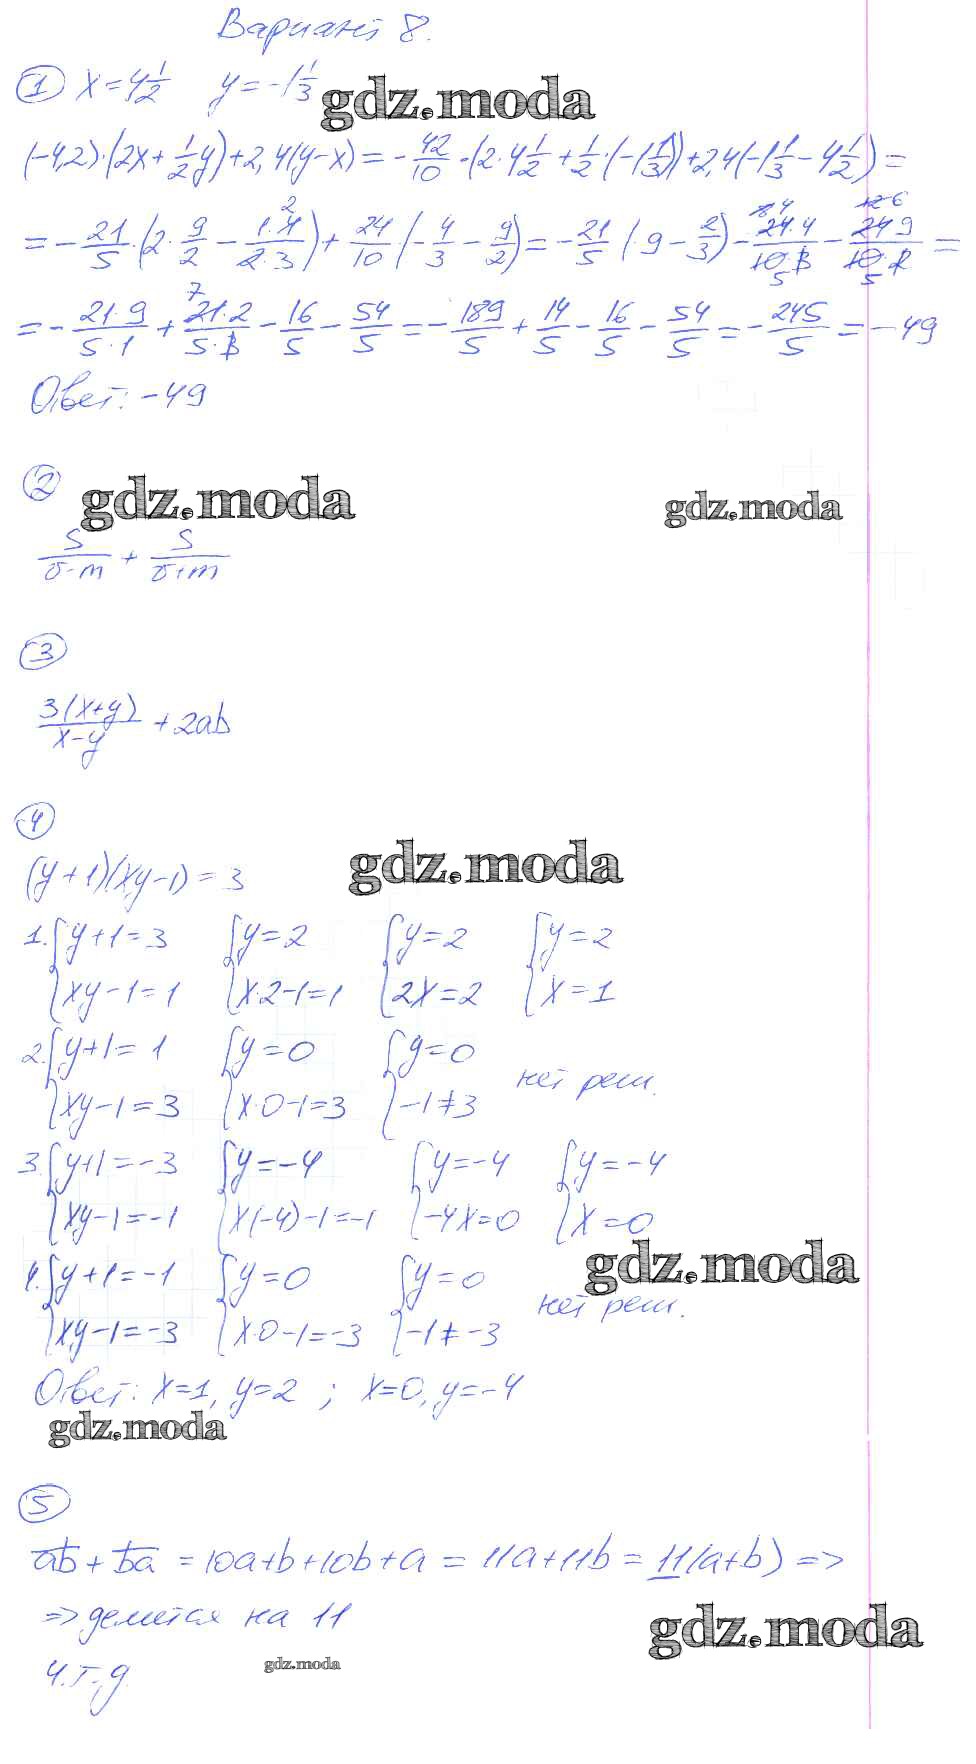 Вариант 8.
① x=4 1/2 y=-1 1/3
gdz.moda
(-4,2)·(2x+1/2y)+2,4(y-x)=-42/10·(2·4 1/2+1/2·(-1 1/3))+2,4(-1 1/3-4 1/2)=
=-21/5·(2·9/2-1·4/2·3)+24/10(-4/3-9/2)=-21/5(·9-2/3)-24·4/10·3-24·9/10·2=
=-21·9/5·1+21·2/5·3-16/5-54/5=-189/5+14/5-16/5-54/5=-245/5=-49
Ответ: -49
②
gdz.moda gdz.moda
S/(v-m) + S/(v+m)
③
3(x+y)/(x-y) + 2ab
④
gdz.moda
(y+1)(xy-1)=3
1. {y+1=3 {y=2 {y=2 {y=2
xy-1=1 x·2-1=1 2x=2 x=1
2. {y+1=1 {y=0 {y=0
xy-1=3 x·0-1=3 -1≠3 нет реш.
3. {y+1=-3 {y=-4 {y=-4 {y=-4
xy-1=-1 x(-4)-1=-1 -4x=0 x=0
gdz.moda
4. {y+1=-1 {y=0 {y=0
xy-1=-3 x·0-1=-3 -1≠-3 нет реш.
Ответ: x=1, y=2 ; x=0, y=-4
gdz.moda
⑤
ab + ba = 10a+b+10b+a = 11a+11b = 11(a+b) =>
=> делится на 11
gdz.moda
ч.т.д
gdz.moda